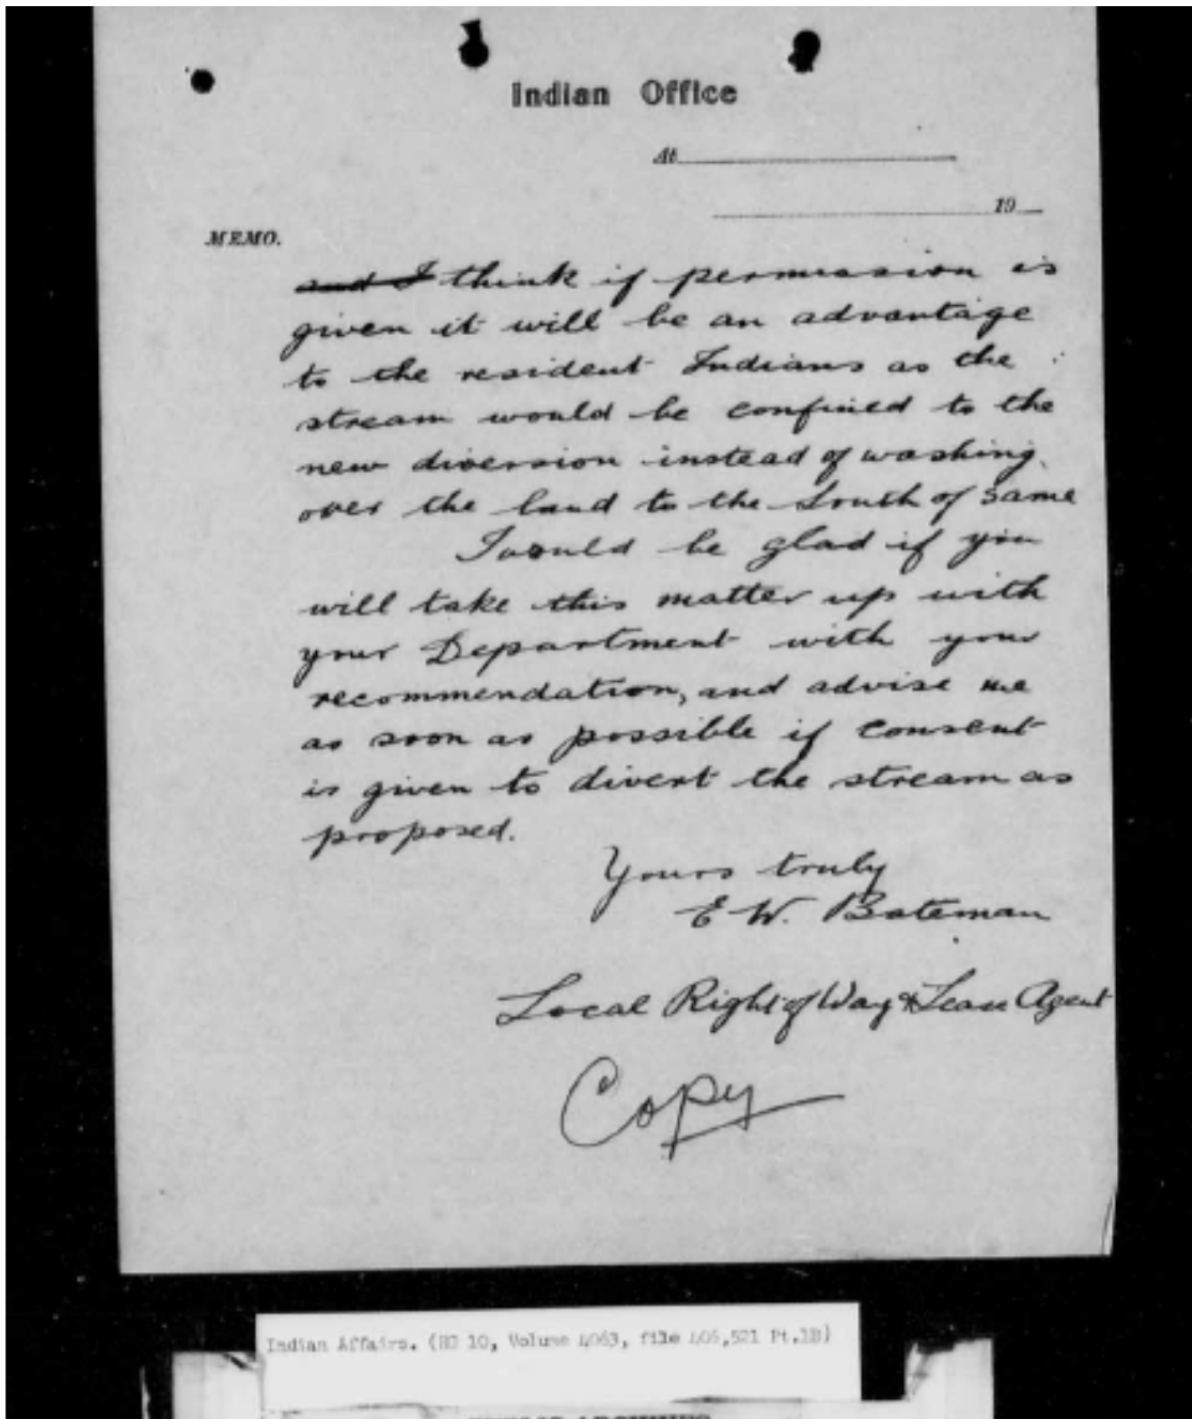 Indian Office
At
19
MEMO.
and I think if permission is
given it will be an advantage
to the resident Indians as the
stream would be confined to the
new diversion instead of washing
over the land to the South of same
I would be glad if you
will take this matter up with
your Department with your
recommendation, and advise me
as soon as possible if consent
is given to divert the stream as
proposed.
Yours truly
E W. Bateman
Local Right of Way & Lease Agent
Copy
Indian Affairs. (RG 10, Volume 4063, file 406,521 Pt.1B)